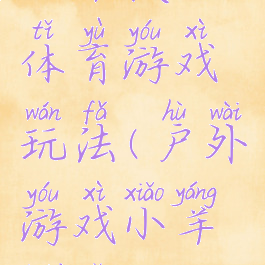 tǐ yù yóu xì
体育游戏
wán fǎ hù wài
玩法(户外
yóu xì xiǎo yáng
游戏小羊